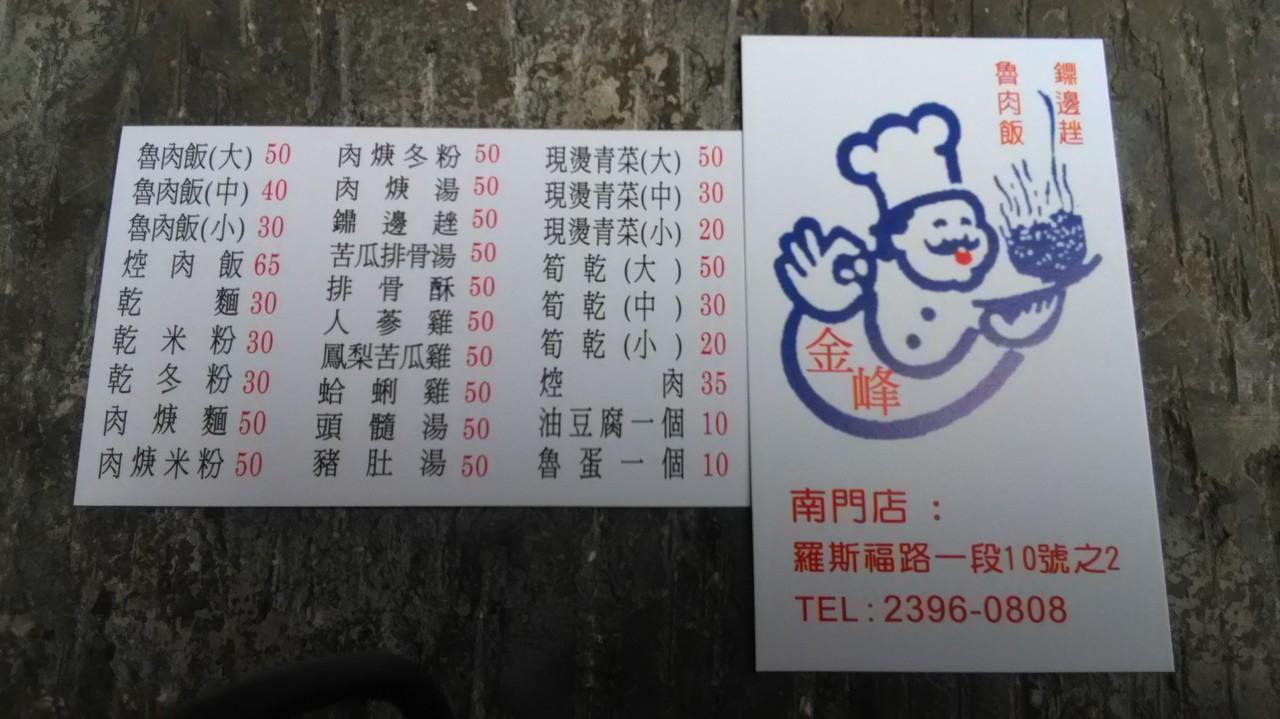 魯肉飯(大) 50
魯肉飯(中) 40
魯肉飯(小) 30
焢肉飯 65
乾麵 30
乾米粉 30
乾冬粉 30
肉焿麵 50
肉焿米粉 50
肉焿冬粉 50
肉焿湯 50
鼎邊趖 50
苦瓜排骨湯 50
排骨酥 50
人蔘雞 50
鳳梨苦瓜雞 50
蛤蜊雞 50
頭髓湯 50
豬肚湯 50
現燙青菜(大) 50
現燙青菜(中) 30
現燙青菜(小) 20
筍乾(大) 50
筍乾(中) 30
筍乾(小) 20
焢肉 35
油豆腐一個 10
魯蛋一個 10
魯肉飯
金峰
南門店：
羅斯福路一段10號之2
TEL:2396-0808